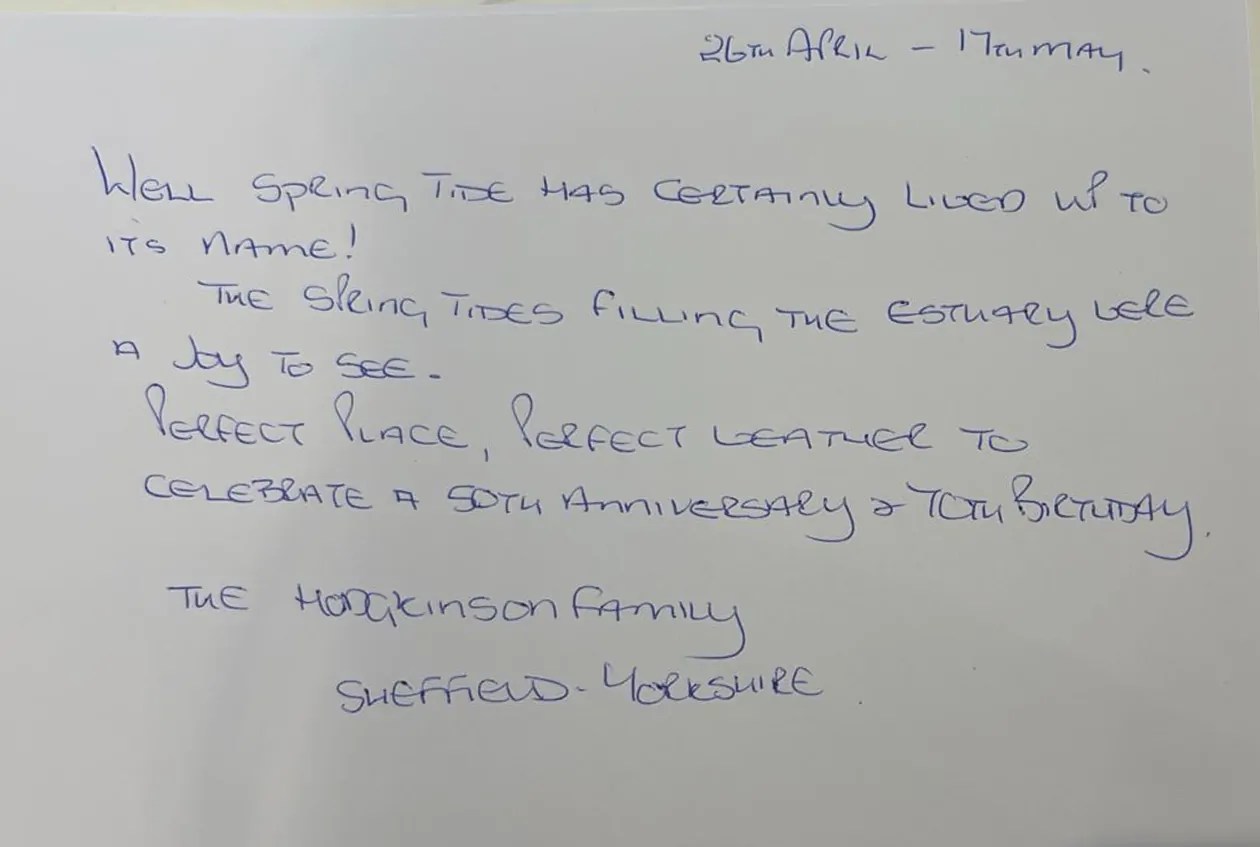 26TH APRIL - 17TH MAY.
WELL SPRING TIDE HAS CERTAINLY LIVED UP TO
ITS NAME!
THE SPRING TIDES FILLING THE ESTUARY WERE
A JOY TO SEE.
PERFECT PLACE, PERFECT WEATHER TO
CELEBRATE A 50TH ANNIVERSARY & 70TH BIRTHDAY.
THE HODGKINSON FAMILY
SHEFFIELD - YORKSHIRE.